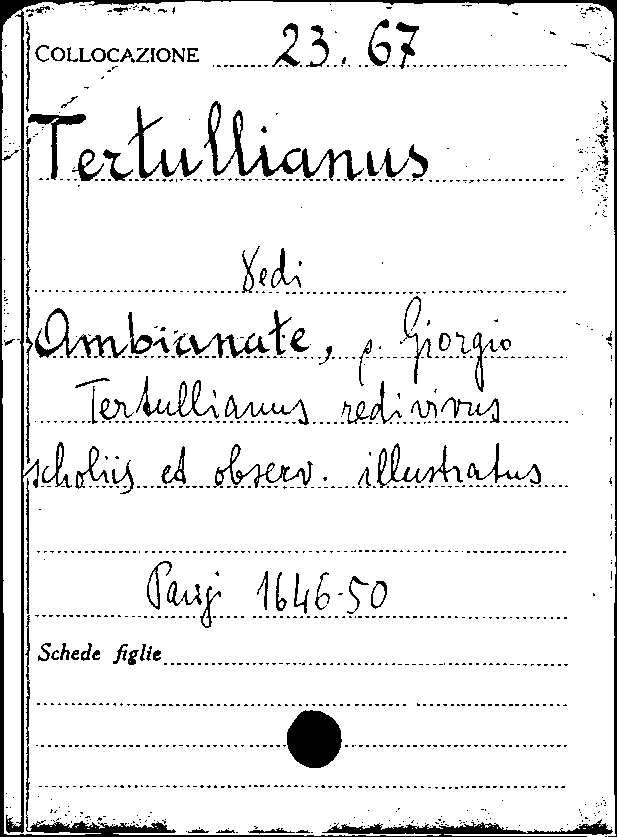 COLLOCAZIONE 23.67
Tertullianus
Vedi
Ambianate, p. Giorgio
Tertullianus redivivus
scholiis et observ. illustratus
Parigi 1646-50
Schede figlie